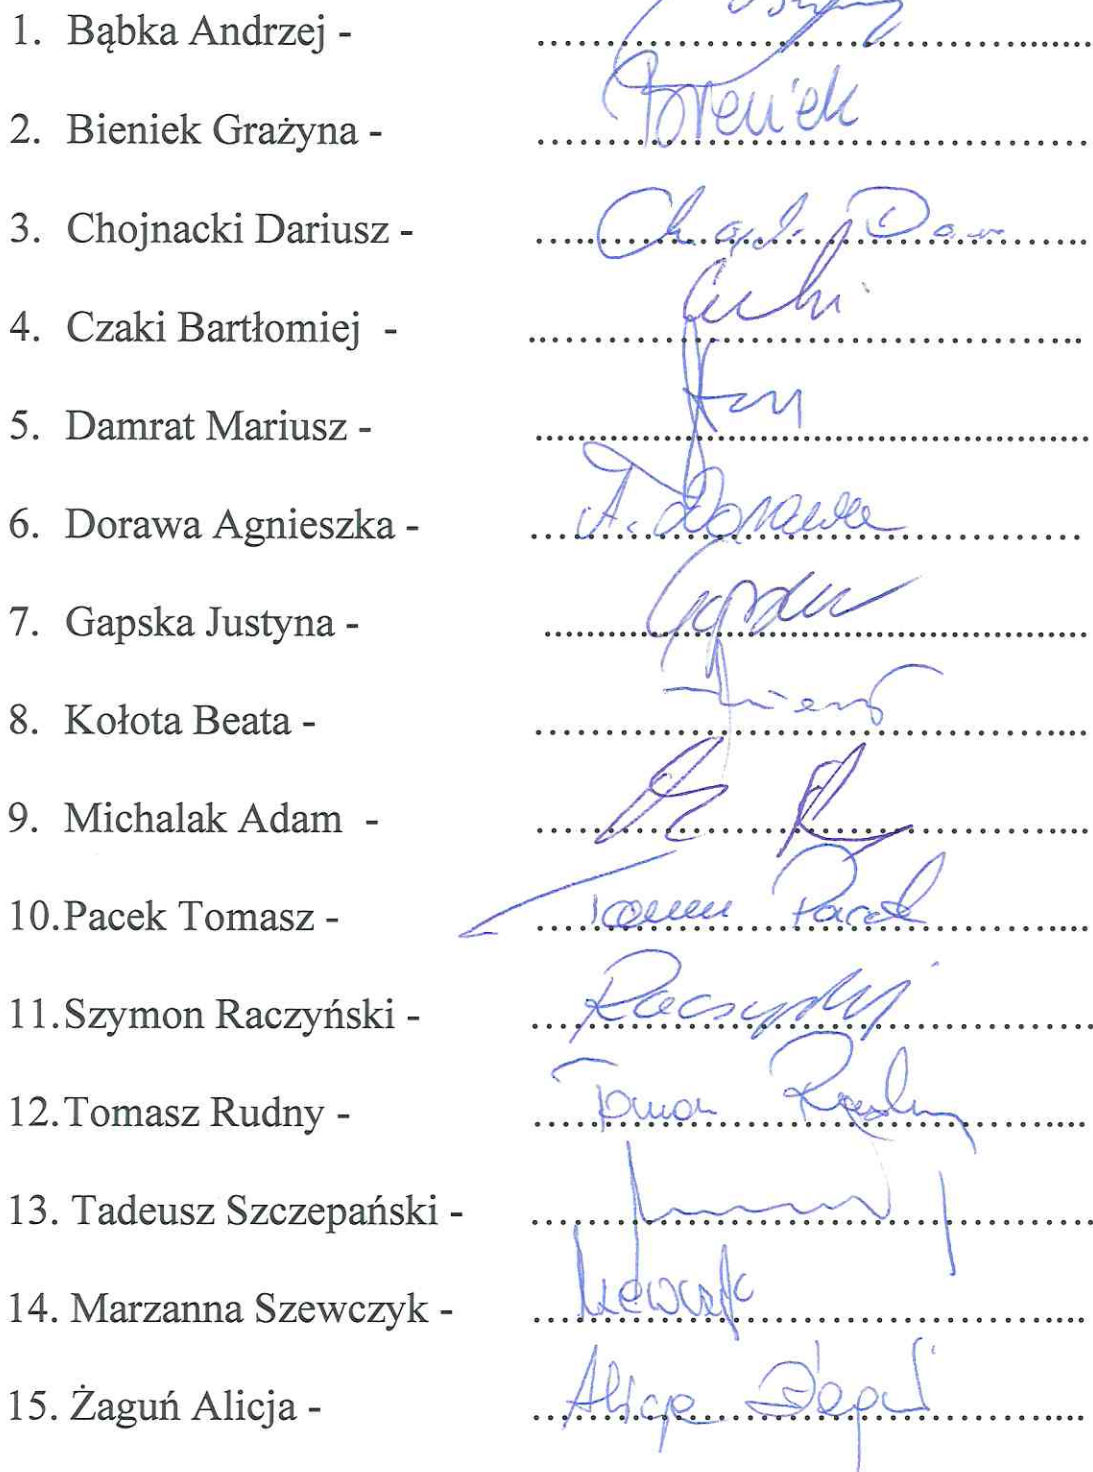 1. Bąbka Andrzej - ..........
2. Bieniek Grażyna - .......... Bieniek
3. Chojnacki Dariusz - ..........
4. Czaki Bartłomiej - ..........
5. Damrat Mariusz - ..........
6. Dorawa Agnieszka - .......... A. Dorawa
7. Gapska Justyna - ..........
8. Kołota Beata - ..........
9. Michalak Adam - ..........
10.Pacek Tomasz - .......... Pacek
11.Szymon Raczyński - ..........
12.Tomasz Rudny - ..........
13. Tadeusz Szczepański - ..........
14. Marzanna Szewczyk - ..........
15. Żaguń Alicja - .......... Alicja Żaguń